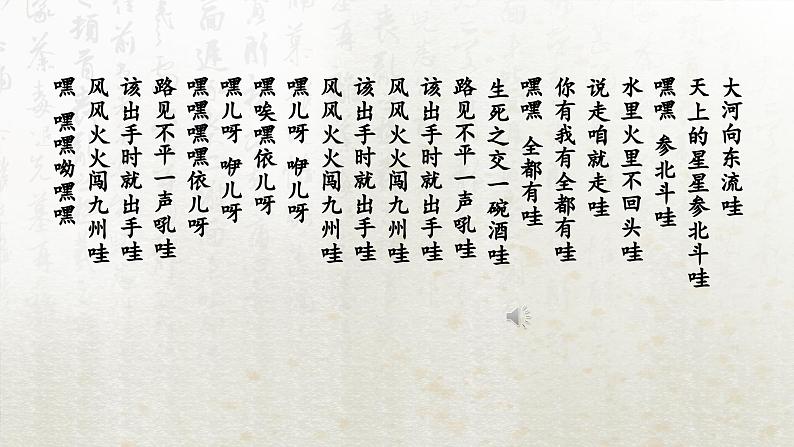 大河向东流哇
天上的星星参北斗哇
嘿嘿 参北斗哇
水里火里不回头哇
说走咱就走哇
你有我有全都有哇
嘿嘿 全都有哇
生死之交一碗酒哇
路见不平一声吼哇
该出手时就出手哇
风风火火闯九州哇
该出手时就出手哇
风风火火闯九州哇
嘿儿呀 咿儿呀
嘿唉嘿依儿呀
嘿儿呀 咿儿呀
嘿嘿嘿嘿依儿呀
路见不平一声吼哇
该出手时就出手哇
风风火火闯九州哇
嘿 嘿嘿呦嘿嘿